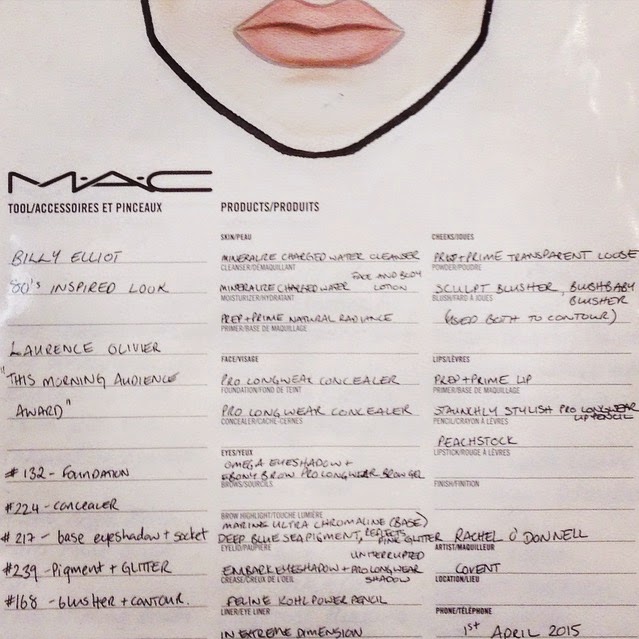 M·A·C
TOOL/ACCESSOIRES ET PINCEAUX
BILLY ELLIOT
80's INSPIRED LOOK
LAURENCE OLIVIER
"THIS MORNING AUDIENCE
AWARD"
#132 - FOUNDATION
#224 - CONCEALER
#217 - base eyeshadow + socket
#239 - Pigment + GLITTER
#168 - blusher + CONTOUR.
PRODUCTS/PRODUITS
SKIN/PEAU
MINERALIZE CHARGED WATER CLEANSER
CLEANSER/DÉMAQUILLANT
FACE AND BODY
MINERALIZE CHARGED WATER LOTION
MOISTURIZER/HYDRATANT
PREP+PRIME NATURAL RADIANCE
PRIMER/BASE DE MAQUILLAGE
FACE/VISAGE
PRO LONGWEAR CONCEALER
FOUNDATION/FOND DE TEINT
PRO LONGWEAR CONCEALER
CONCEALER/CACHE-CERNES
EYES/YEUX
OMEGA EYESHADOW +
EBONY BROW PRO LONGWEAR BROW GEL
BROWS/SOURCILS
BROW HIGHLIGHT/TOUCHE LUMIÈRE
MARINE ULTRA CHROMALINE (BASE)
DEEP BLUE SEA PIGMENT, REFLECTS PINK GLITTER
EYELID/PAUPIÈRE
UNINTERRUPTED
EMBARK EYESHADOW + PRO LONGWEAR
SHADOW
CREASE/CREUX DE L'OEIL
FELINE KOHL POWER PENCIL
LINER/EYE LINER
IN EXTREME DIMENSION
CHEEKS/JOUES
PREP+PRIME TRANSPARENT LOOSE
POWDER/POUDRE
SCULPT BLUSHER, BLUSHBABY
BLUSHER
BLUSH/FARD À JOUES
(USED BOTH TO CONTOUR)
LIPS/LÈVRES
PREP+PRIME LIP
PRIMER/BASE DE MAQUILLAGE
STAUNCHLY STYLISH PRO LONGWEAR
LIP PENCIL
PENCIL/CRAYON À LÈVRES
PEACHSTOCK
LIPSTICK/ROUGE À LÈVRES
FINISH/FINITION
RACHEL O'DONNELL
ARTIST/MAQUILLEUR
COVENT
LOCATION/LIEU
PHONE/TÉLÉPHONE
1st APRIL 2015